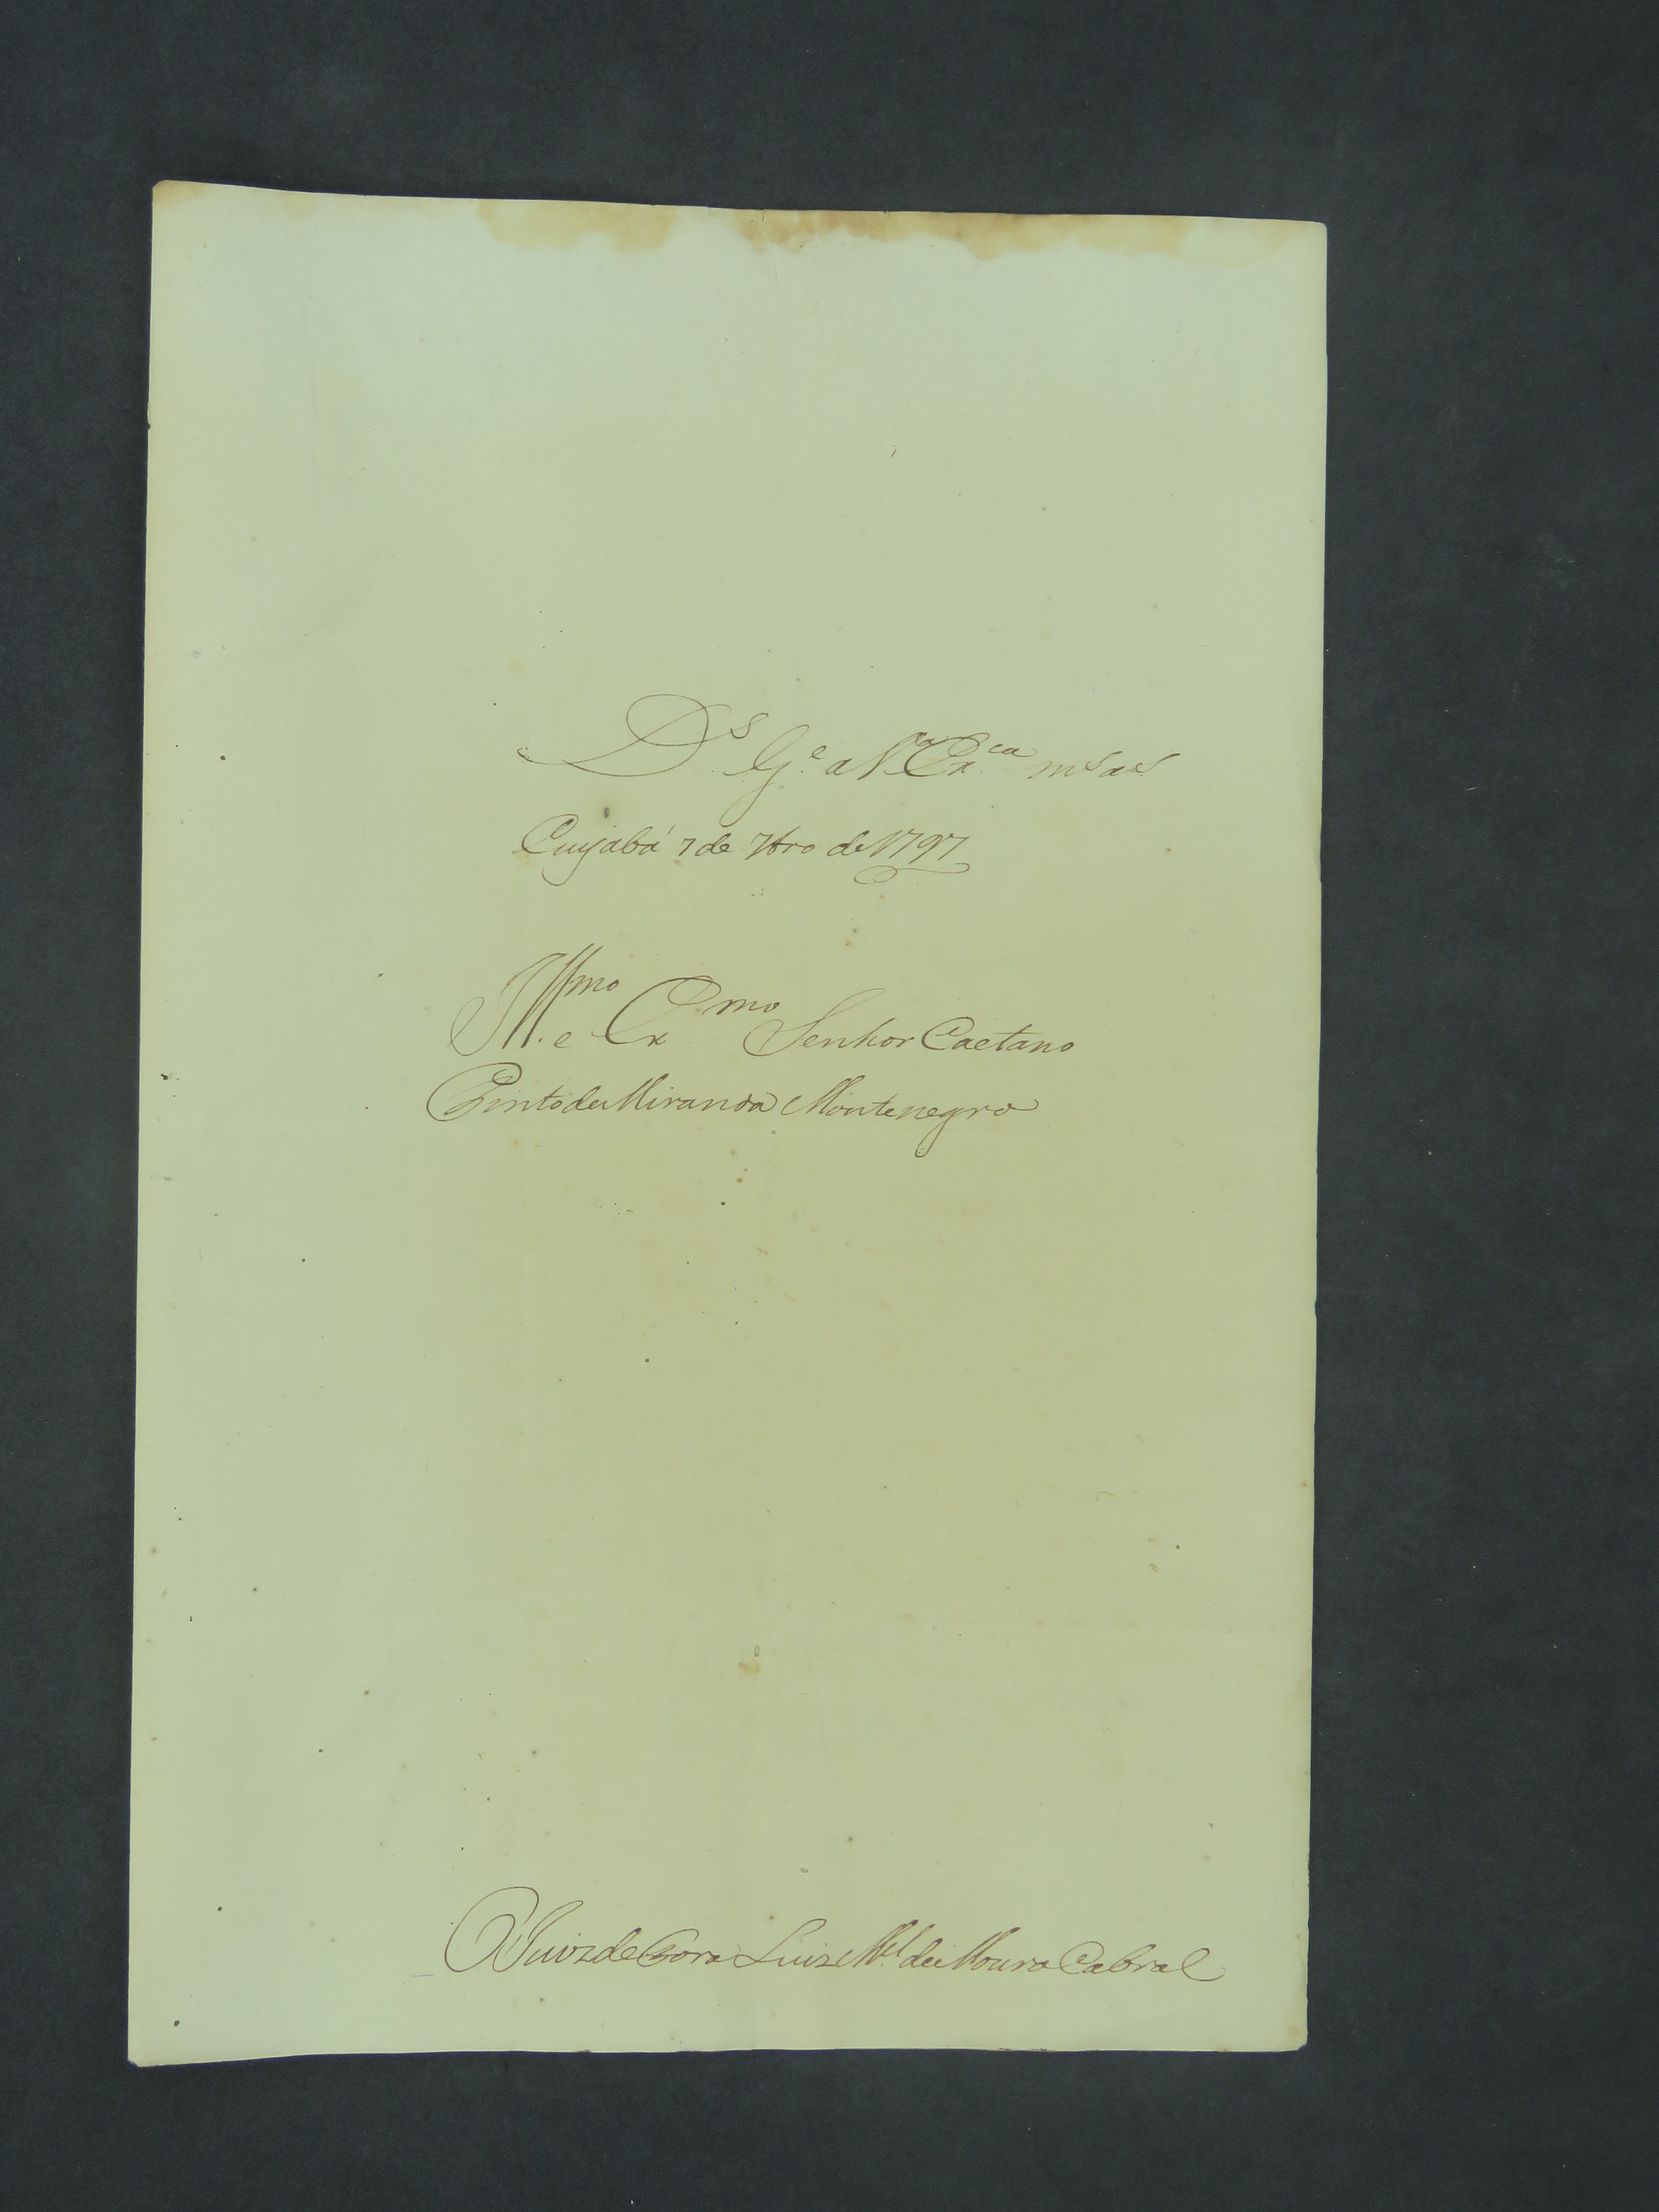 D.s G.e a V.a Ex.ca m.s a.s
Cuyabá 7 de 7bro de 1797
Ill.mo e Ex.mo Senhor Caetano
Pinto de Miranda Montenegro
O Juiz de Fora Luiz M.el de Moura Cabral